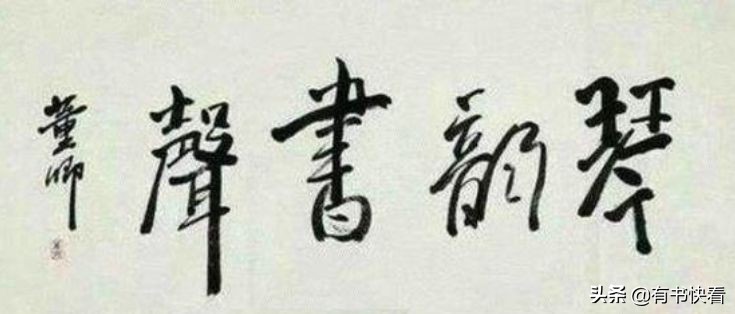 琴韵書聲
董卿
头条 @有书快看